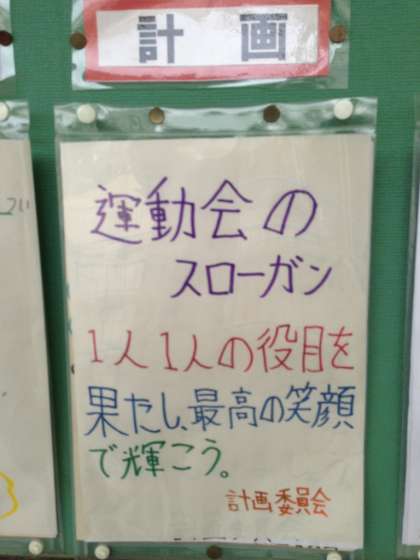 計画
運動会の
スローガン
1人1人の役目を
果たし、最高の笑顔
で輝こう。
計画委員会